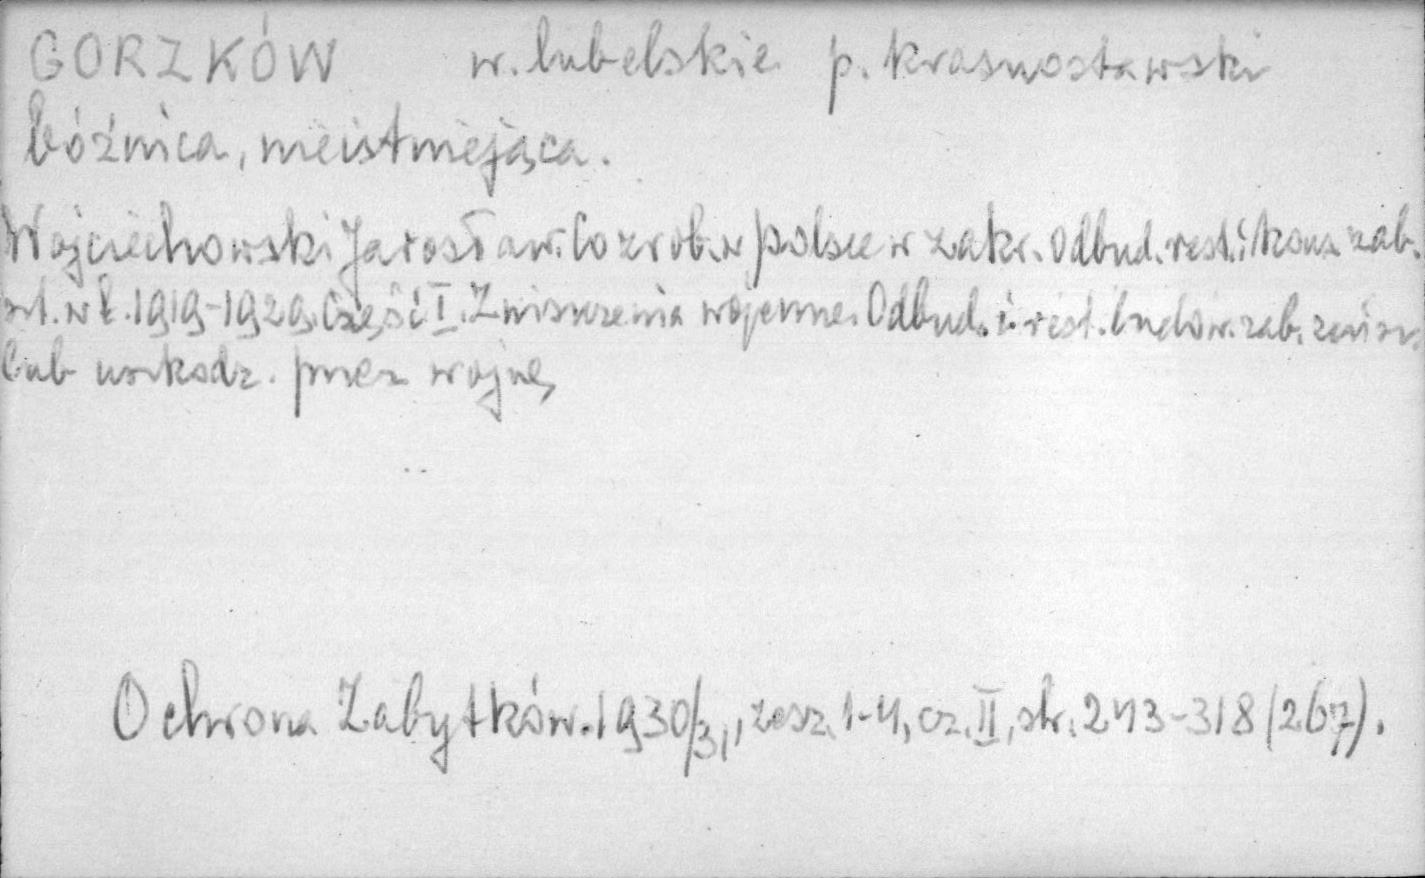 GORZKÓW w. lubelskie p. krasnostawski
bóźnica, nieistniejąca.
Wojciechowski Jarosław. Co zrob. w Polsce w zakr. odbud. rest. i kons. zab.
szt. w l. 1919-1929. Część I. Zniszczenia wojenne. Odbud. i rest. budow. zab. zniszcz.
lub uszkodz. przez wojnę
Ochrona Zabytków. 1930/31, zesz. 1-4, cz. II, str. 243-318 (267).